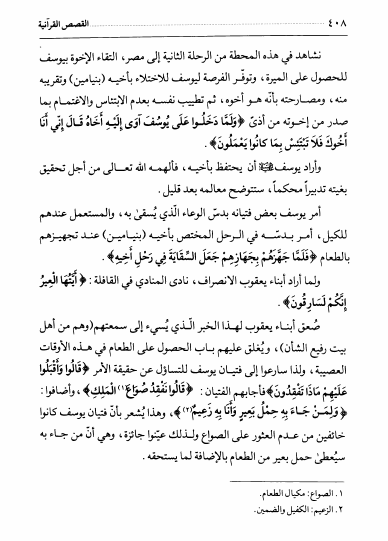 ٤٠٨ القصص القرآنية
نشاهد في هذه المحطة من الرحلة الثانية إلى مصر، التقاء الإخوة بيوسف
للحصول على الميرة، وتوفّر الفرصة ليوسف للاختلاء بأخيه (بنيامين) وتقريبه
منه، ومصارحته بأنّه هو أخوه، ثم تطييب نفسه بعدم الابتئاس والاغتمام بما
صدر من إخوته من أذىً ﴿وَلَمَّا دَخَلُوا عَلَى يُوسُفَ آوَى إِلَيْهِ أَخَاهُ قَالَ إِنِّي أَنَا
أَخُوكَ فَلَا تَبْتَئِسْ بِمَا كَانُوا يَعْمَلُونَ﴾.
وأراد يوسف أن يحتفظ بأخيه، فألهمه الله تعالى من أجل تحقيق
بغيته تدبيراً محكماً، ستتوضح معالمه بعد قليل.
أمر يوسف بعض فتيانه بدسّ الوعاء الّذي يُسقىٰ به، والمستعمل عندهم
للكيل، أمر بدسّه في الرحل المختص بأخيه (بنيامين) عند تجهيزهم
بالطعام ﴿فَلَمَّا جَهَّزَهُمْ بِجَهَازِهِمْ جَعَلَ السِّقَايَةَ فِي رَحْلِ أَخِيهِ﴾.
ولما أراد أبناء يعقوب الانصراف، نادى المنادي في القافلة: ﴿أَيَّتُهَا الْعِيرُ
إِنَّكُمْ لَسَارِقُونَ﴾.
صُعق أبناء يعقوب لهذا الخبر الّذي يُسيء إلى سمعتهم(وهم من أهل
بيت رفيع الشأن)، ويُغلق عليهم باب الحصول على الطعام في هذه الأوقات
العصيبة، ولذا سارعوا إلى فتيان يوسف للتساؤل عن حقيقة الأمر ﴿قَالُوا وَأَقْبَلُوا
عَلَيْهِمْ مَاذَا تَفْقِدُونَ﴾فأجابهم الفتيان: ﴿قَالُوا نَفْقِدُ صُوَاعَ(١) الْمَلِكِ﴾، وأضافوا:
﴿وَلِمَنْ جَاءَ بِهِ حِمْلُ بَعِيرٍ وَأَنَا بِهِ زَعِيمٌ(٢)﴾، وهذا يُشعر بأنّ فتيان يوسف كانوا
خائفين من عدم العثور على الصواع ولذلك عيّنوا جائزة، وهي أنّ من جاء به
سيُعطىٰ حمل بعير من الطعام بالإضافة لما يستحقه.
١. الصواع: مكيال الطعام.
٢. الزعيم: الكفيل والضمين.